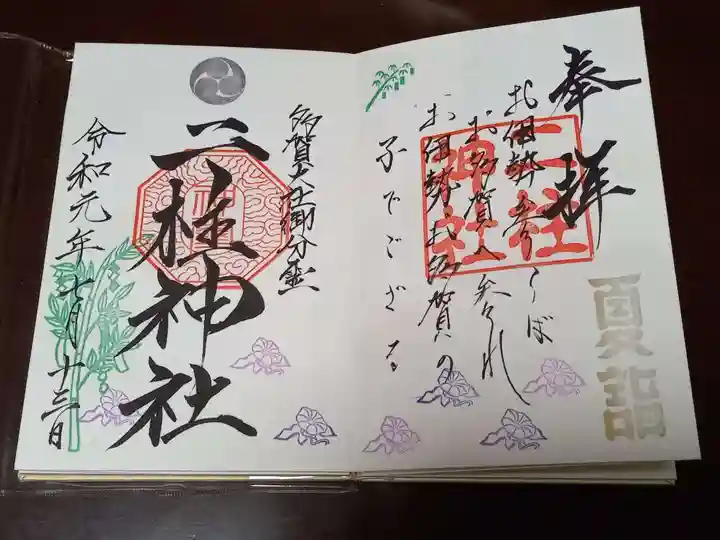 奉拝
お伊勢参らば
お多賀へ参れ
お伊勢お多賀の
子でござる
二柱
神社
夏詣
多賀大社御分霊
二柱神社
令和元年七月十三日